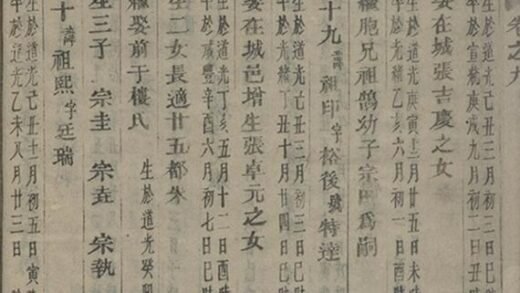 卷之九
生於道光亡丑三月初三日巳
卒於宣統庚戌九月初二日丑時
娶在城張吉慶之女
生於道光庚寅十二月廿五日未時
卒於光緒乙亥六月初一日酉時
繼胞兄祖鵠幼子宗田為嗣
十九 諱祖印字松後號特達
生於道光亡丑三月初三日巳時
卒於光緒丁丑十月廿四日巳時
娶在城邑增生張卓元之女
生於道光丁亥五月十二日酉時
卒於咸豐辛酉六月初七日巳時
生二女長適廿五都朱
繼娶前于樓氏
生於道光癸卯
生三子 宗圭 宗垚 宗執
十 諱祖熙字廷瑞
生於道光亡丑十二月初五日寅時
卒於道光乙未八月廿三日